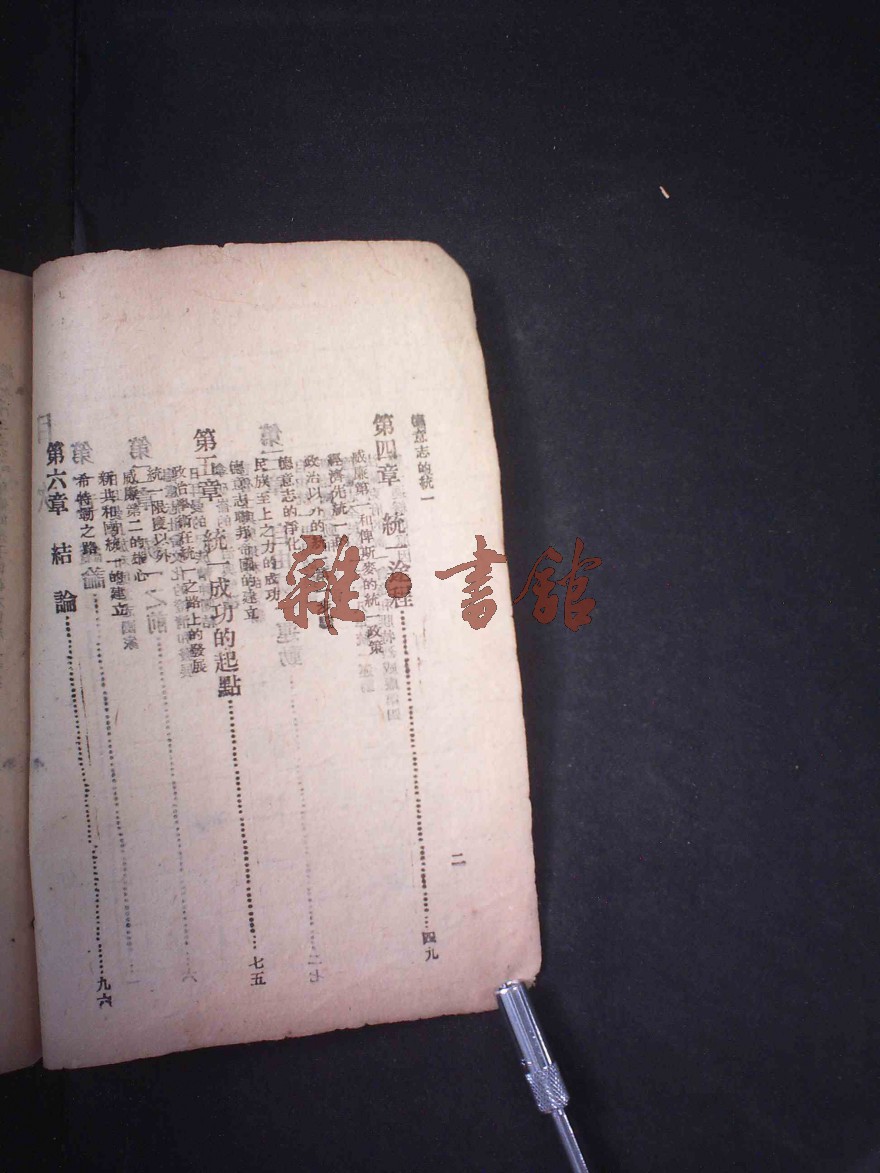 德意志的統一
第四章 統一途程……四九
威廉第一和俾斯麥的統一政策
經濟先統一的
政治以外的
德意志的淨化
民族至上之力的成功
德意志聯邦帝國的建立
第五章 統一成功的起點……七五
政治學術在統一之路上的發展
統一限度以外
威廉第二的雄心
新共和國統一的建立
希特勒之路
第六章 結論……九六
二
雜·書館